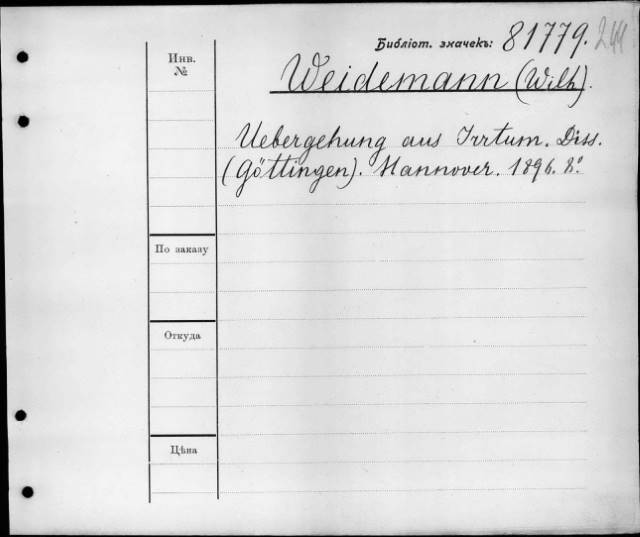 Библіот. значекъ: 81779. 244
Инв.
№
Weidemann (Wilh).
Uebergehung aus Irrtum. Diss.
(Göttingen). Hannover. 1896. 8º.
По заказу
Откуда
Цѣна